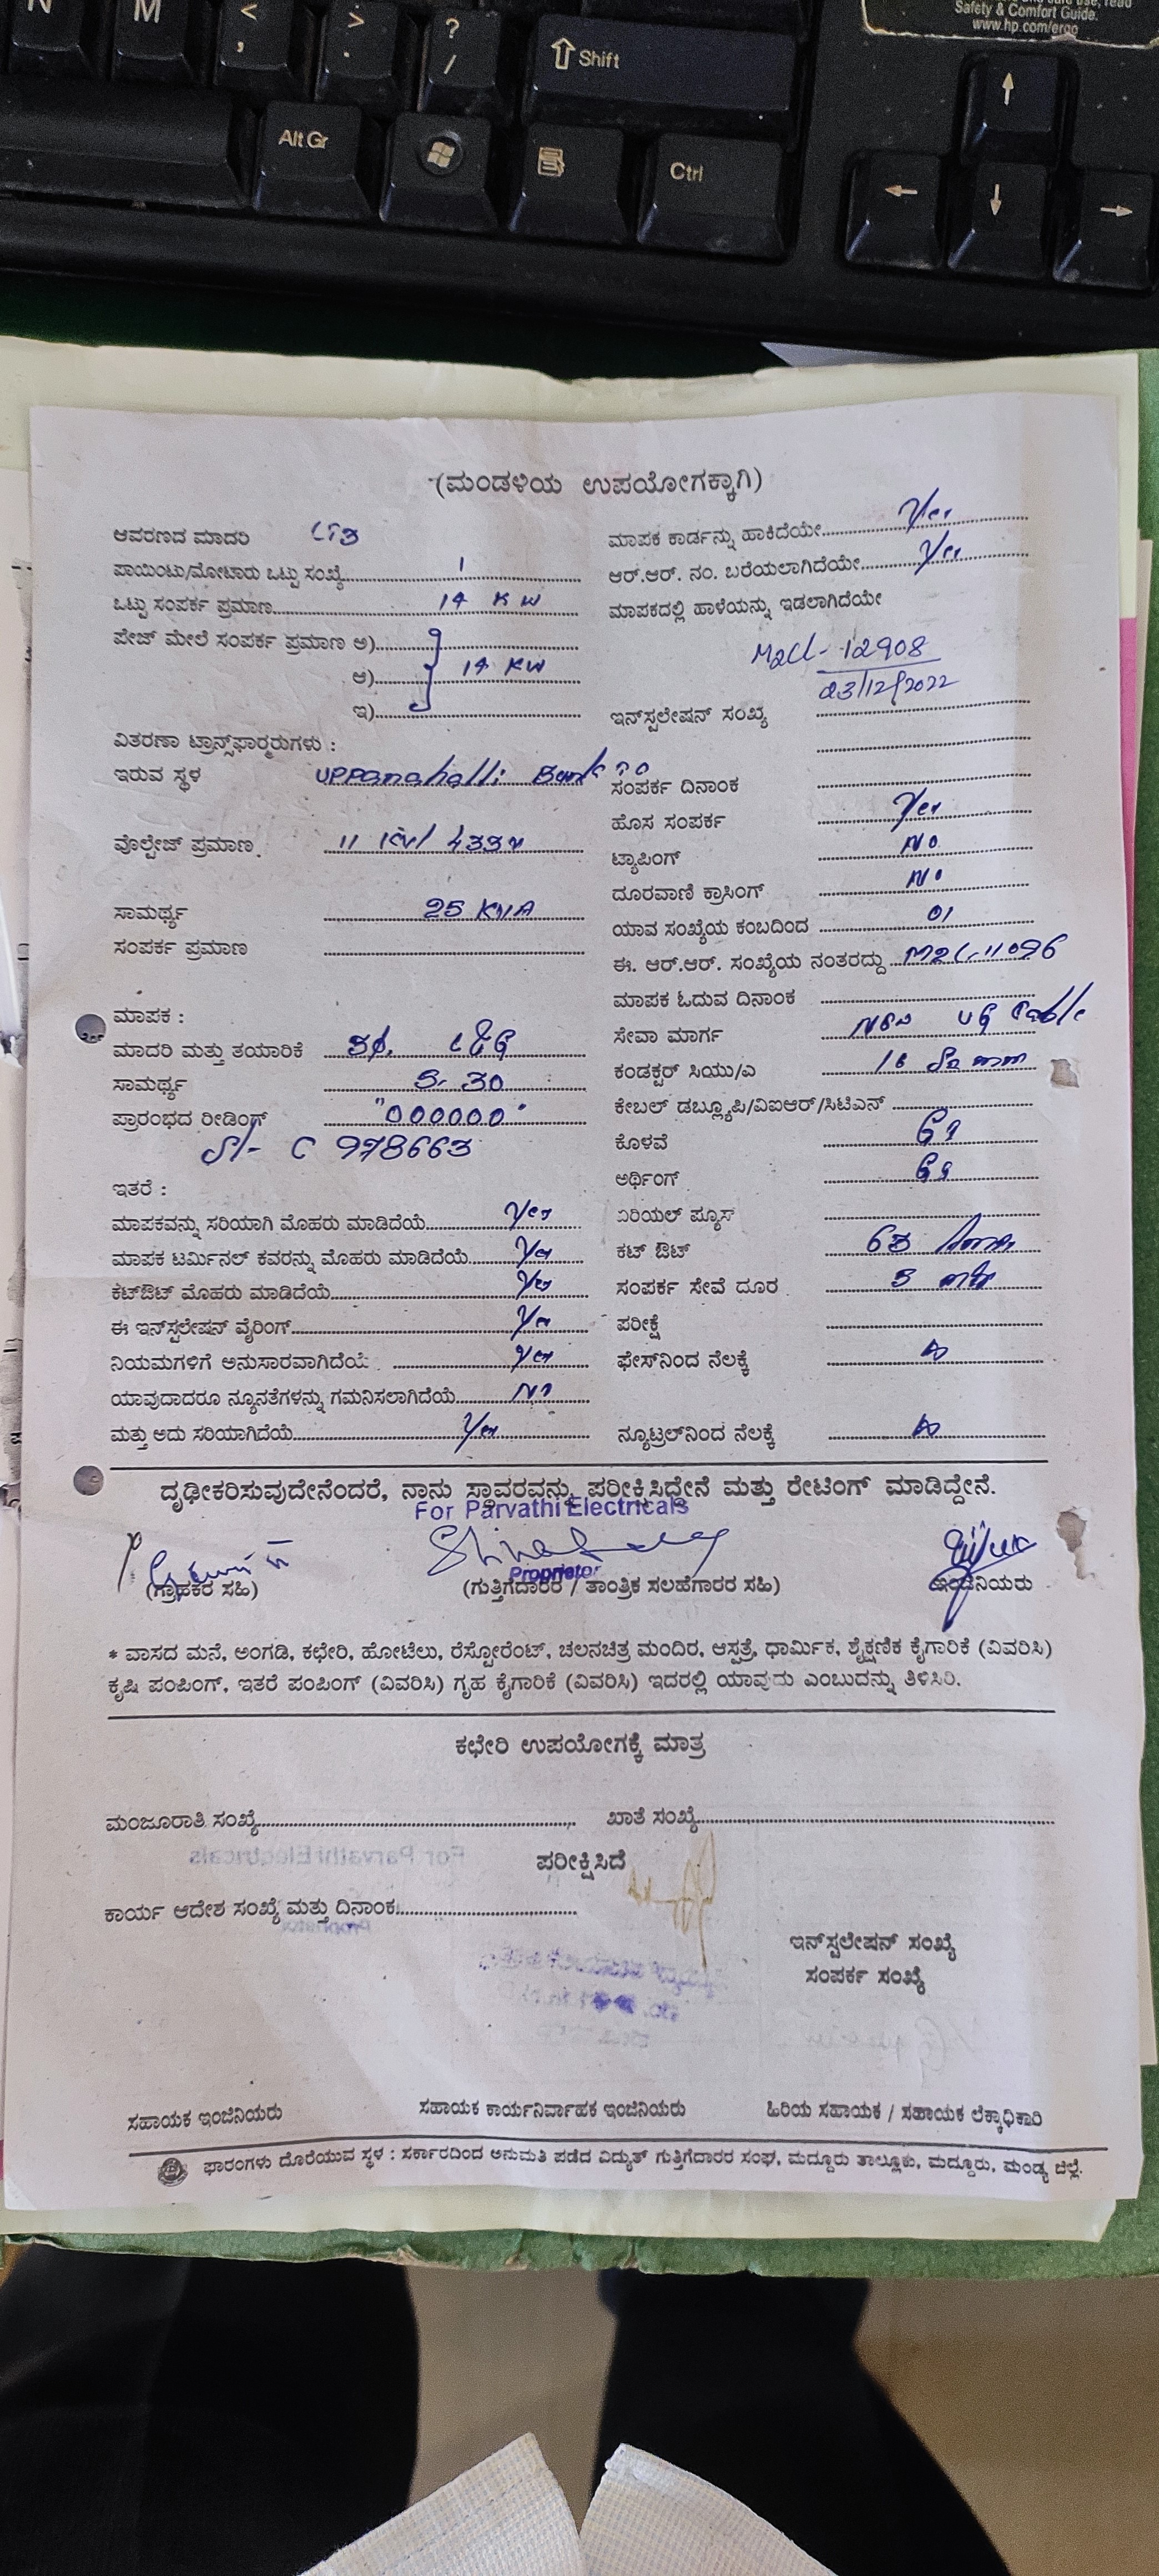 N M < , > . ? / Shift
Safety & Comfort Guide.
www.hp.com/ergo
Alt Gr Ctrl
(ಮಂಡಳಿಯ ಉಪಯೋಗಕ್ಕಾಗಿ)
ಆವರಣದ ಮಾದರಿ LT3
ಪಾಯಿಂಟು/ಮೋಟಾರು ಒಟ್ಟು ಸಂಖ್ಯೆ 1
ಒಟ್ಟು ಸಂಪರ್ಕ ಪ್ರಮಾಣ 14 KW
ಪೇಜ್ ಮೇಲೆ ಸಂಪರ್ಕ ಪ್ರಮಾಣ ಅ)
ಆ) 14 KW
ಇ)
ವಿತರಣಾ ಟ್ರಾನ್ಸ್‌ಫಾರ್ಮರುಗಳು :
ಇರುವ ಸ್ಥಳ Uppanahalli
ವೊಲ್ಟೇಜ್ ಪ್ರಮಾಣ 11 KV/ 433V
ಸಾಮರ್ಥ್ಯ 25 KVA
ಸಂಪರ್ಕ ಪ್ರಮಾಣ
ಮಾಪಕ :
ಮಾದರಿ ಮತ್ತು ತಯಾರಿಕೆ 3φ. L&G
ಸಾಮರ್ಥ್ಯ 5-30
ಪ್ರಾರಂಭದ ರೀಡಿಂಗ್ "000000"
Sl- C 978663
ಇತರೆ :
ಮಾಪಕವನ್ನು ಸರಿಯಾಗಿ ಮೊಹರು ಮಾಡಿದೆಯೆ Yes
ಮಾಪಕ ಟರ್ಮಿನಲ್ ಕವರನ್ನು ಮೊಹರು ಮಾಡಿದೆಯೆ Yes
ಕಟ್‌ಔಟ್ ಮೊಹರು ಮಾಡಿದೆಯೆ Yes
ಈ ಇನ್‌ಸ್ಟಲೇಷನ್ ವೈರಿಂಗ್ Yes
ನಿಯಮಗಳಿಗೆ ಅನುಸಾರವಾಗಿದೆಯೆ Yes
ಯಾವುದಾದರೂ ನ್ಯೂನತೆಗಳನ್ನು ಗಮನಿಸಲಾಗಿದೆಯೆ No
ಮತ್ತು ಅದು ಸರಿಯಾಗಿದೆಯೆ Yes
ಮಾಪಕ ಕಾರ್ಡನ್ನು ಹಾಕಿದೆಯೇ Yes
ಆರ್.ಆರ್. ನಂ. ಬರೆಯಲಾಗಿದೆಯೇ Yes
ಮಾಪಕದಲ್ಲಿ ಹಾಳೆಯನ್ನು ಇಡಲಾಗಿದೆಯೇ
12908
23/12/2022
ಇನ್‌ಸ್ಟಲೇಷನ್ ಸಂಖ್ಯೆ
ಸಂಪರ್ಕ ದಿನಾಂಕ
ಹೊಸ ಸಂಪರ್ಕ Yes
ಟ್ಯಾಪಿಂಗ್ No
ದೂರವಾಣಿ ಕ್ರಾಸಿಂಗ್ No
ಯಾವ ಸಂಖ್ಯೆಯ ಕಂಬದಿಂದ 01
ಈ. ಆರ್.ಆರ್. ಸಂಖ್ಯೆಯ ನಂತರದ್ದು
ಮಾಪಕ ಓದುವ ದಿನಾಂಕ
ಸೇವಾ ಮಾರ್ಗ New UG Cable
ಕಂಡಕ್ಟರ್ ಸಿಯು/ಎ 16 Sq mm
ಕೇಬಲ್ ಡಬ್ಲ್ಯೂಪಿ/ವಿಐಆರ್/ಸಿಟಿಎನ್
ಕೊಳವೆ GI
ಅರ್ಥಿಂಗ್ GI
ಏರಿಯಲ್ ಫ್ಯೂಸ್
ಕಟ್ ಔಟ್ 63 Amps
ಸಂಪರ್ಕ ಸೇವೆ ದೂರ 5 mtr
ಪರೀಕ್ಷೆ
ಫೇಸ್‌ನಿಂದ ನೆಲಕ್ಕೆ ∞
ನ್ಯೂಟ್ರಲ್‌ನಿಂದ ನೆಲಕ್ಕೆ ∞
ದೃಢೀಕರಿಸುವುದೇನೆಂದರೆ, ನಾನು ಸ್ಥಾವರವನ್ನು ಪರೀಕ್ಷಿಸಿದ್ದೇನೆ ಮತ್ತು ರೇಟಿಂಗ್ ಮಾಡಿದ್ದೇನೆ.
For Parvathi Electricals
Proprietor
(ಗ್ರಾಹಕರ ಸಹಿ) (ಗುತ್ತಿಗೆದಾರರ / ತಾಂತ್ರಿಕ ಸಲಹೆಗಾರರ ಸಹಿ) ಇಂಜಿನಿಯರು
* ವಾಸದ ಮನೆ, ಅಂಗಡಿ, ಕಛೇರಿ, ಹೋಟೆಲು, ರೆಸ್ಟೋರೆಂಟ್, ಚಲನಚಿತ್ರ ಮಂದಿರ, ಆಸ್ಪತ್ರೆ, ಧಾರ್ಮಿಕ, ಶೈಕ್ಷಣಿಕ ಕೈಗಾರಿಕೆ (ವಿವರಿಸಿ)
ಕೃಷಿ ಪಂಪಿಂಗ್, ಇತರೆ ಪಂಪಿಂಗ್ (ವಿವರಿಸಿ) ಗೃಹ ಕೈಗಾರಿಕೆ (ವಿವರಿಸಿ) ಇದರಲ್ಲಿ ಯಾವುದು ಎಂಬುದನ್ನು ತಿಳಿಸಿರಿ.
ಕಛೇರಿ ಉಪಯೋಗಕ್ಕೆ ಮಾತ್ರ
ಮಂಜೂರಾತಿ ಸಂಖ್ಯೆ ಖಾತೆ ಸಂಖ್ಯೆ
ಪರೀಕ್ಷಿಸಿದೆ
ಕಾರ್ಯ ಆದೇಶ ಸಂಖ್ಯೆ ಮತ್ತು ದಿನಾಂಕ
ಇನ್‌ಸ್ಟಲೇಷನ್ ಸಂಖ್ಯೆ
ಸಂಪರ್ಕ ಸಂಖ್ಯೆ
ಸಹಾಯಕ ಇಂಜಿನಿಯರು ಸಹಾಯಕ ಕಾರ್ಯನಿರ್ವಾಹಕ ಇಂಜಿನಿಯರು ಹಿರಿಯ ಸಹಾಯಕ / ಸಹಾಯಕ ಲೆಕ್ಕಾಧಿಕಾರಿ
ಫಾರಂಗಳು ದೊರೆಯುವ ಸ್ಥಳ : ಸರ್ಕಾರದಿಂದ ಅನುಮತಿ ಪಡೆದ ವಿದ್ಯುತ್ ಗುತ್ತಿಗೆದಾರರ ಸಂಘ, ಮದ್ದೂರು ತಾಲ್ಲೂಕು, ಮದ್ದೂರು, ಮಂಡ್ಯ ಜಿಲ್ಲೆ.